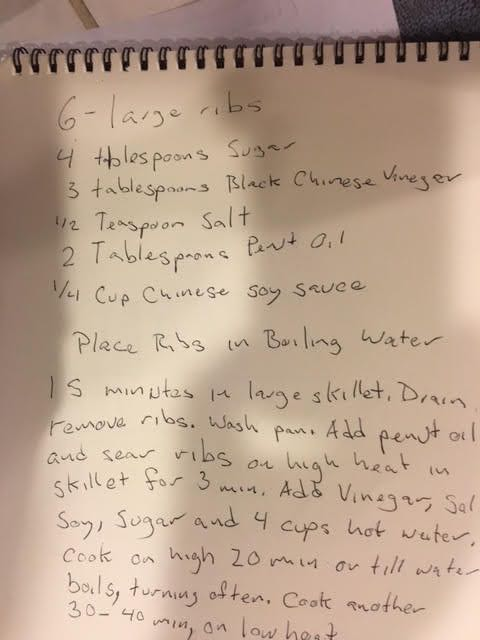 6-large ribs
4 tablespoons Sugar
3 tablespoons Black Chinese Vineger
1/2 Teaspoon Salt
2 Tablespoons Penut Oil
1/4 Cup Chinese soy sauce
Place Ribs in Boiling Water
15 minutes in large skillet. Drain,
remove ribs. Wash pan. Add penut oil
and sear ribs on high heat in
skillet for 3 min. Add Vinegar, Sal
Soy, Sugar and 4 cups hot water.
Cook on high 20 min or till water
boils, turning often. Cook another
30-40 min, on low heat